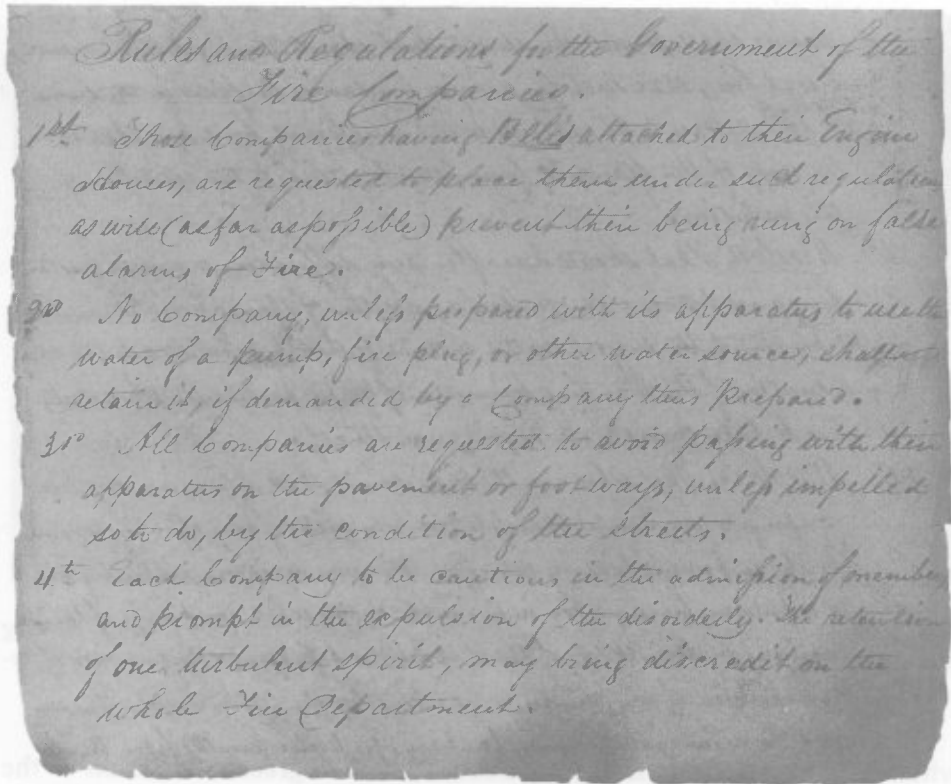 Rules and Regulations for the Government of the
Fire Companies.
1st Those Companies having Bells attached to their Engine
Houses, are requested to place them under such regulation
as will (as far as possible) prevent their being rung on false
alarms of Fire.
2nd No Company, unless prepared with its apparatus to use the
water of a pump, fire plug, or other water source, shall
retain it, if demanded by a Company thus prepared.
3rd All Companies are requested to avoid passing with their
apparatus on the pavement or foot ways, unless impelled
so to do, by the condition of the streets.
4th Each Company to be cautious in the admission of members
and prompt in the expulsion of the disorderly. The retention
of one turbulent spirit, may bring discredit on the
whole Fire Department.